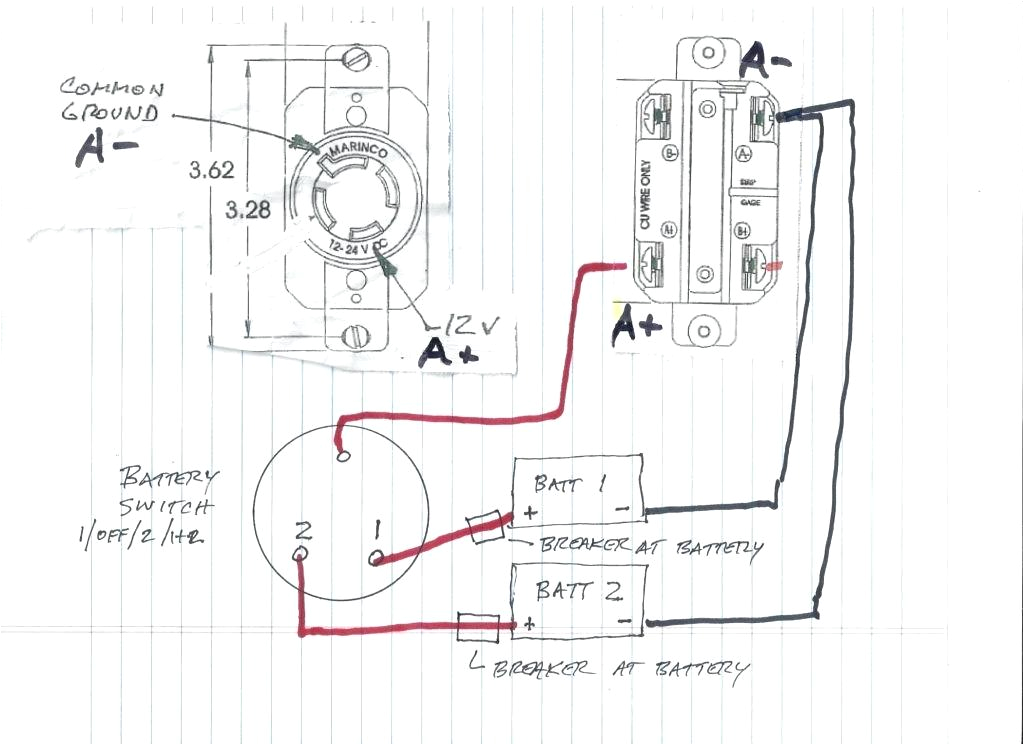 COMMON
GROUND
A-
3.62
3.28
MARINCO
12-24 V DC
-12V
A+
A-
B-
A-
CU WIRE ONLY
STRIP
GAGE
A+
B+
A+
BATTERY
SWITCH
1/OFF/2/1+2
2
1
BATT 1
+ -
BREAKER AT BATTERY
BATT 2
+ -
BREAKER AT BATTERY